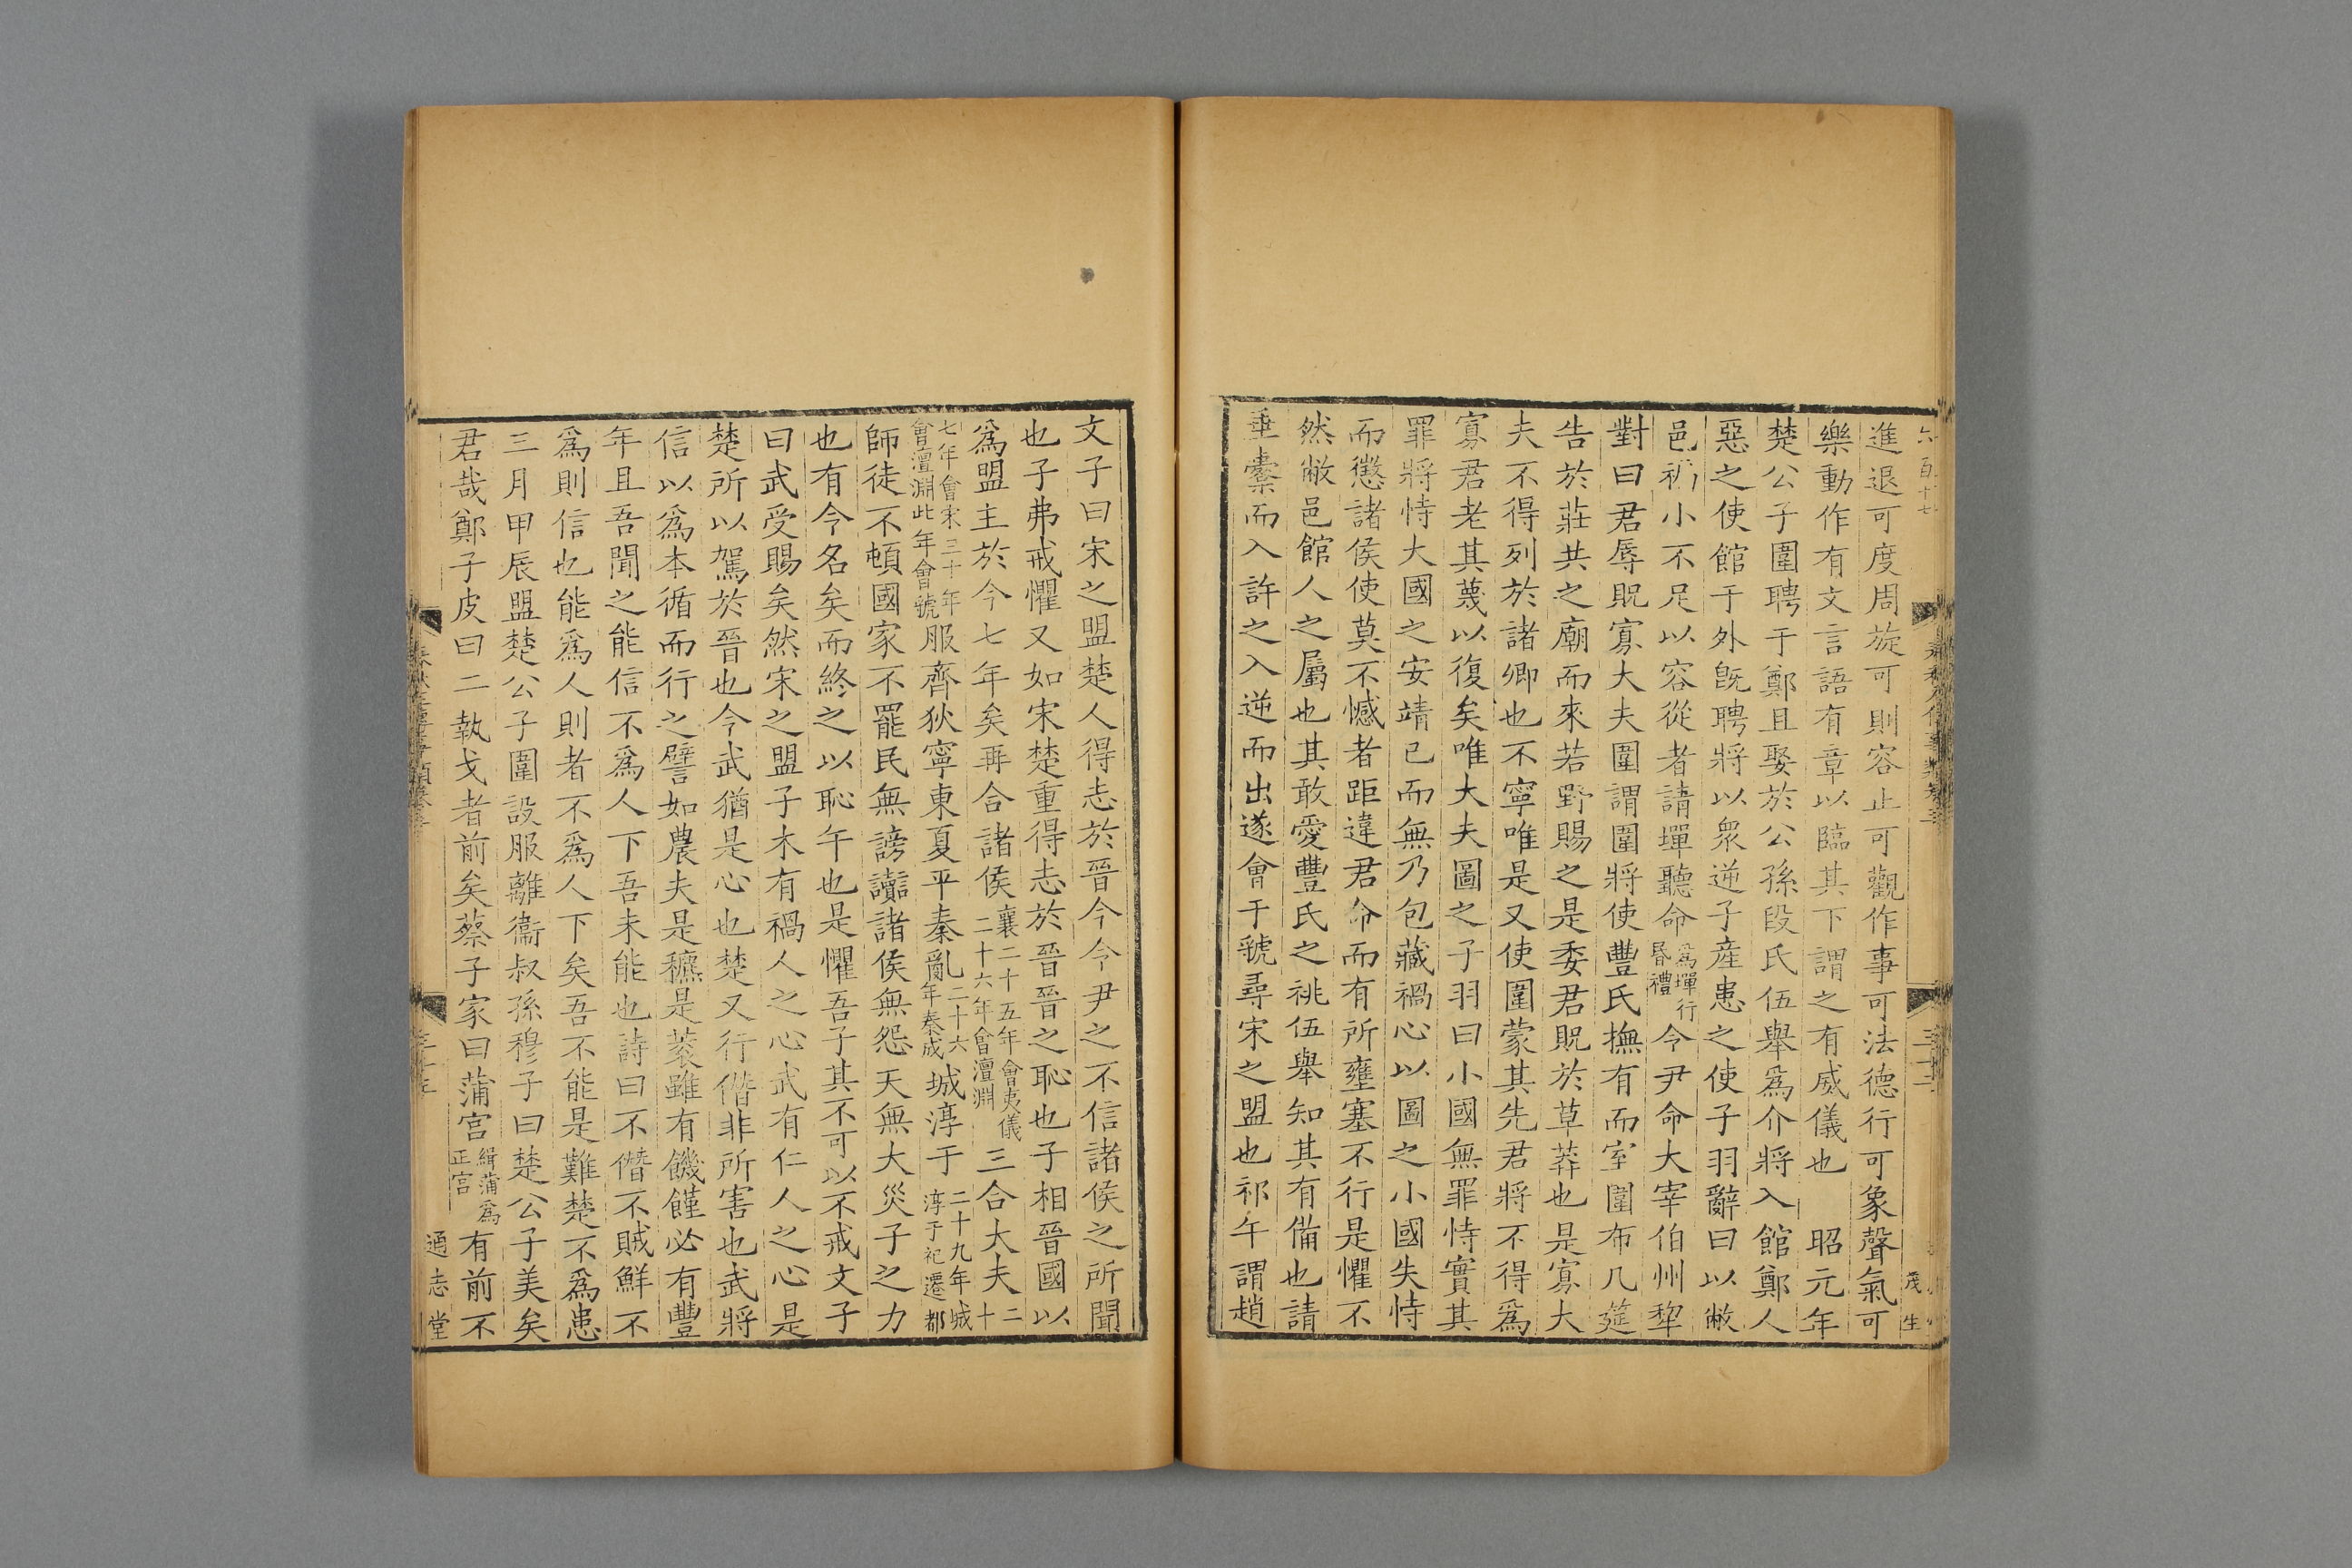 進退可度周旋可則容止可觀作事可法德行可象聲氣可
樂動作有文言語有章以臨其下謂之有威儀也　昭元年
楚公子圍聘于鄭且娶於公孫段氏伍舉為介將入館鄭人
惡之使館于外旣聘將以衆逆子產患之使子羽辭曰以敝
邑褊小不足以容從者請墠聽命為墠行昬禮令尹命大宰伯州犂
對曰君辱貺寡大夫圍謂圍將使豐氏撫有而室圍布几筵
告於莊共之廟而來若野賜之是委君貺於草莽也是寡大
夫不得列於諸卿也不寧唯是又使圍蒙其先君將不得為
寡君老其蔑以復矣唯大夫圖之子羽曰小國無罪恃實其
罪將恃大國之安靖已而無乃包藏禍心以圖之小國失恃
而懲諸侯使莫不憾者距違君命而有所壅塞不行是懼不
然敝邑館人之屬也其敢愛豐氏之祧伍舉知其有備也請
垂櫜而入許之入逆而出遂會于虢尋宋之盟也祁午謂趙
文子曰宋之盟楚人得志於晉今令尹之不信諸侯之所聞
也子弗戒懼又如宋楚重得志於晉晉之恥也子相晉國以
為盟主於今七年矣再合諸侯襄二十五年會夷儀二十六年會澶淵三合大夫二十
七年會宋三十年會澶淵此年會虢服齊狄寧東夏平秦亂二十六年秦成城淳于二十九年城淳于杞遷都
師徒不頓國家不罷民無謗讟諸侯無怨天無大災子之力
也有令名矣而終之以恥午也是懼吾子其不可以不戒文子
曰武受賜矣然宋之盟子木有禍人之心武有仁人之心是
楚所以駕於晉也今武猶是心也楚又行僭非所害也武將
信以為本循而行之譬如農夫是穮是蔉雖有饑饉必有豐
年且吾聞之能信不為人下吾未能也詩曰不僭不賊鮮不
為則信也能為人則者不為人下矣吾不能是難楚不為患
三月甲辰盟楚公子圍設服離衞叔孫穆子曰楚公子美矣
君哉鄭子皮曰二執戈者前矣蔡子家曰蒲宮緝蒲為正宮有前不
通志堂